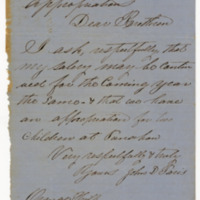 Appropriation
Dear Brethren
I ask, respectfully, that
my salary may be contin
ued for the coming year
the same & that we have
an appropriation for two
children at Punahou
Very respectfully & truly
Yours John D Paris